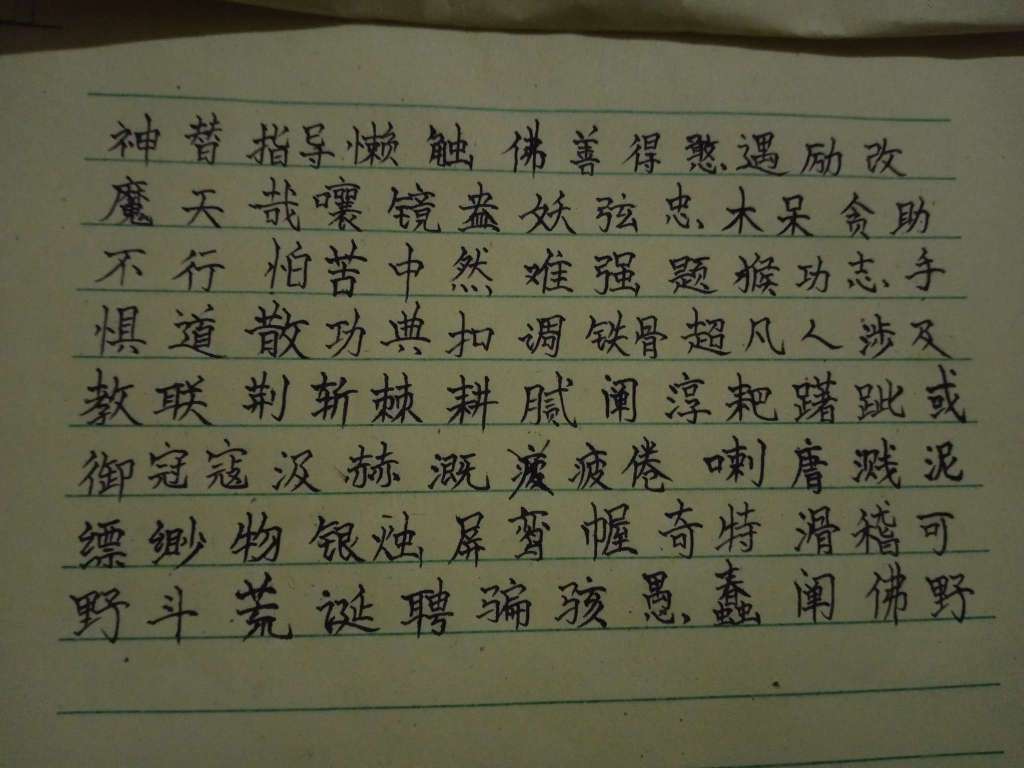 神替指导懒触佛善得憨遇励改
魔天哉嚷镜盎妖弦忠木呆贪助
不行怕苦中然难强题猴功志手
惧道散功典扣调铁骨超凡人涉及
教联荆斩棘耕腻阐淳耙躇跐或
御冠寇汲赫溉疲倦喇膺溅泥
缥缈物银烛屏鸾幄奇特滑稽可
野斗荒诞聘骗骇愚蠢阐佛野